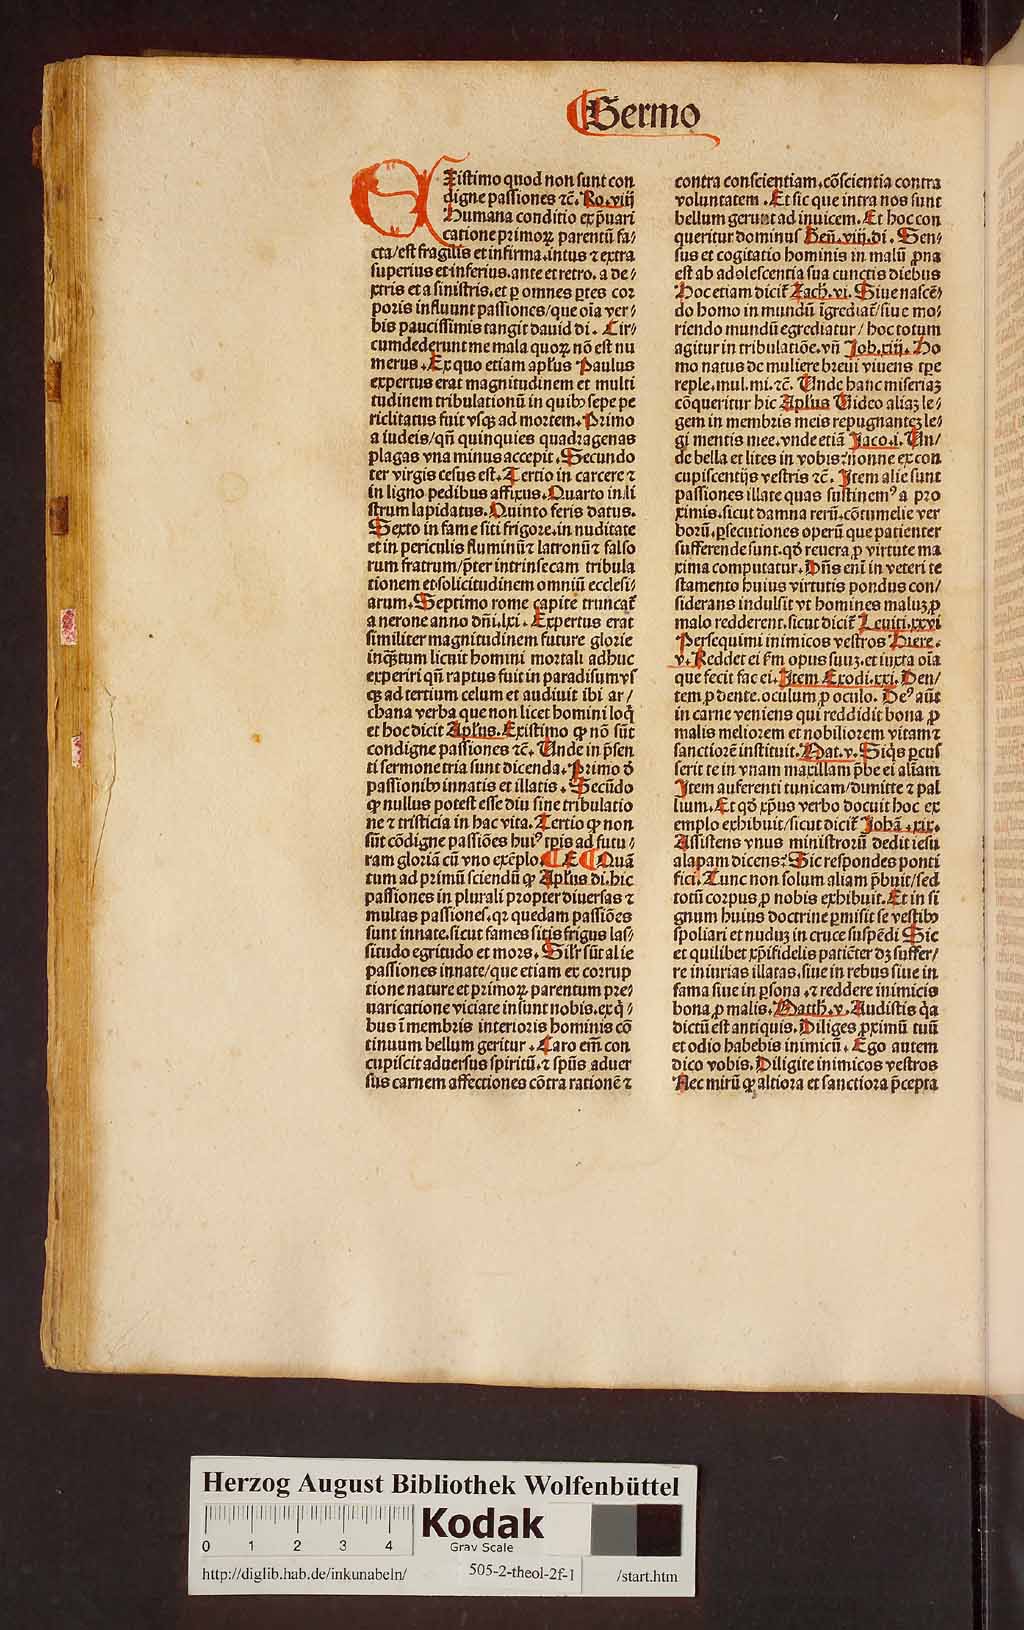 Sermo
EXistimo quod non sunt con
digne passiones ⁊c̃. Ro. viij
Humana conditio ex p̃uari
catione primoꝝ parentũ fa⸗
cta/est fragilis et infirma. intus ⁊ extra
superius et inferius. ante et retro. a de⸗
xtris et a sinistris. et ꝑ omnes ꝑtes cor
poris influunt passiones/que oĩa ver⸗
bis paucissimis tangit dauid di. Cir⸗
cumdederunt me mala quoꝝ nõ est nu
merus. Ex quo etiam apl̃us Paulus
expertus erat magnitudinem et multi
tudinem tribulationũ in quibꝰ sepe pe
riclitatus fuit vsqꝫ ad mortem. Primo
a iudeis/qñ quinquies quadragenas
plagas vna minus accepit. Secundo
ter virgis cesus est. Tertio in carcere ⁊
in ligno pedibus affixus. Quarto in li
strum lapidatus. Quinto feris datus.
Sexto in fame siti frigore. in nuditate
et in periculis fluminũ ⁊ latronũ ⁊ falso
rum fratrum/p̃ter intrinsecam tribula
tionem et solicitudinem omniũ ecclesi⸗
arum. Septimo rome capite truncat̃
a nerone anno dñi. lxi. Expertus erat
similiter magnitudinem future glorie
inqꝫtum licuit homini mortali adhuc
experiri qñ raptus fuit in paradisum vs
qꝫ ad tertium celum et audiuit ibi ar⸗
chana verba que non licet homini loq̃
et hoc dicit Apl̃us. Existimo ꝙ nõ sũt
condigne passiones ⁊c̃. Unde in p̃sen
ti sermone tria sunt dicenda. Primo d̃
passionibꝰ innatis et illatis. Secũdo
ꝙ nullus potest esse diu sine tribulatio
ne ⁊ tristicia in hac vita. Tertio ꝙ non
sũt cõdigne passiões huiꝰ tp̃is ad futu⸗
ram gloriã cũ vno exẽplo. ¶ E ¶ Quã
tum ad primũ sciendũ ꝙ Apl̃us di. hic
passiones in plurali propter diuersas ⁊
multas passiones. qꝛ quedam passiões
sunt innate. sicut fames sitis frigus las⸗
situdo egritudo et mors. Sil̃r sũt alie
passiones innate/que etiam ex corrup
tione nature et primoꝝ parentum pre⸗
uaricatione viciate insunt nobis. ex q̃⸗
bus ĩ membris interioris hominis cõ
tinuum bellum geritur. Caro em̃ con
cupiscit aduersus spiritũ. ⁊ spũs aduer
sus carnem affectiones cõtra rationẽ ⁊
contra conscientiam. cõscientia contra
voluntatem. Et sic que intra nos sunt
bellum gerunt ad inuicem. Et hoc con
queritur dominus Geñ. viij. di. Sen⸗
sus et cogitatio hominis in malũ ꝓna
est ab adolescentia sua cunctis diebus
Hoc etiam dicit̃ Zach. vi. Siue nascẽ⸗
do homo in mundũ ĩgrediat̃/siue mo⸗
riendo mundũ egrediatur/hoc totum
agitur in tribulatiõe. vñ Job. xiiij. Ho
mo natus de muliere breui viuens tp̃e
reple. mul. mi. ⁊c̃. Unde hanc miseriaꝫ
cõqueritur hic Apl̃us Uideo aliaꝫ le⸗
gem in membris meis repugnanteꝫ le⸗
gi mentis mee. vnde etiã Jaco. i. Un⸗
de bella et lites in vobis: nonne ex con
cupiscentijs vestris ⁊c̃. Item alie sunt
passiones illate quas sustinemꝰ a pro
ximis. sicut damna rerũ. cõtumelie ver
borũ. ꝑsecutiones operũ que patienter
sufferende sunt. qd̃ reuera ꝓ virtute ma
xima computatur. Dñs em̃ in veteri te
stamento huius virtutis pondus con⸗
siderans indulsit vt homines maluꝫ ꝓ
malo redderent. sicut dicit̃ Leuiti. xxvi
Persequimi inimicos vestros Hiere.
v. Reddet ei f̃m opus suuꝫ. et iuxta oĩa
que fecit fac ei. Item Exodi. xxi. Den⸗
tem ꝓ dente. oculum ꝓ oculo. Deꝰ aũt
in carne veniens qui reddidit bona ꝓ
malis meliorem et nobiliorem vitam ⁊
sanctiorẽ instituit. Mat. v. Siq̃s ꝑcus
serit te in vnam maxillam p̃be ei aliam
Item auferenti tunicam/dimitte ⁊ pal
lium. Et qd̃ xp̃us verbo docuit hoc ex
emplo exhibuit/sicut dicit̃ Johã. xix.
Assistens vnus ministrorũ dedit iesu
alapam dicens: Sic respondes ponti
fici. Tunc non solum aliam p̃buit/sed
totũ corpus ꝓ nobis exhibuit. Et in si
gnum huius doctrine ꝑmisit se vestibꝰ
spoliari et nuduꝫ in cruce suspẽdi Sic
et quilibet xp̃ifidelis patiẽter dꝫ suffer⸗
re iniurias illatas. siue in rebus siue in
fama siue in ꝑsona. ⁊ reddere inimicis
bona ꝓ malis. Matth. v. Audistis q̃a
dictũ est antiquis. Diliges ꝓximũ tuũ
et odio habebis inimicũ. Ego autem
dico vobis. Diligite inimicos vestros
Nec mirũ qꝛ altiora et sanctiora p̃cepta
Herzog August Bibliothek Wolfenbüttel
0 1 2 3 4
Kodak
Gray Scale
http://diglib.hab.de/inkunabeln/ 505-2-theol-2f-1 /start.htm